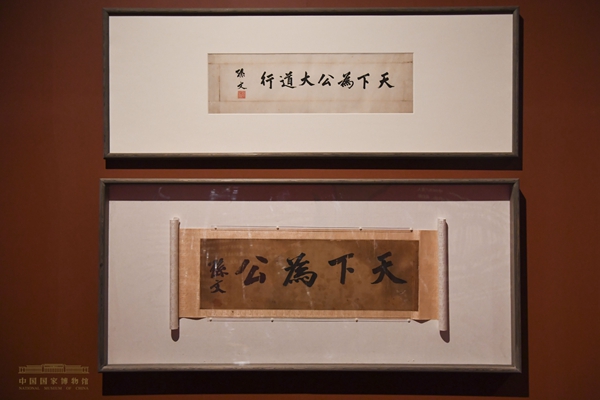 天下為公大道行
孫文
天下為公
孫文
中国国家博物馆
NATIONAL MUSEUM OF CHINA